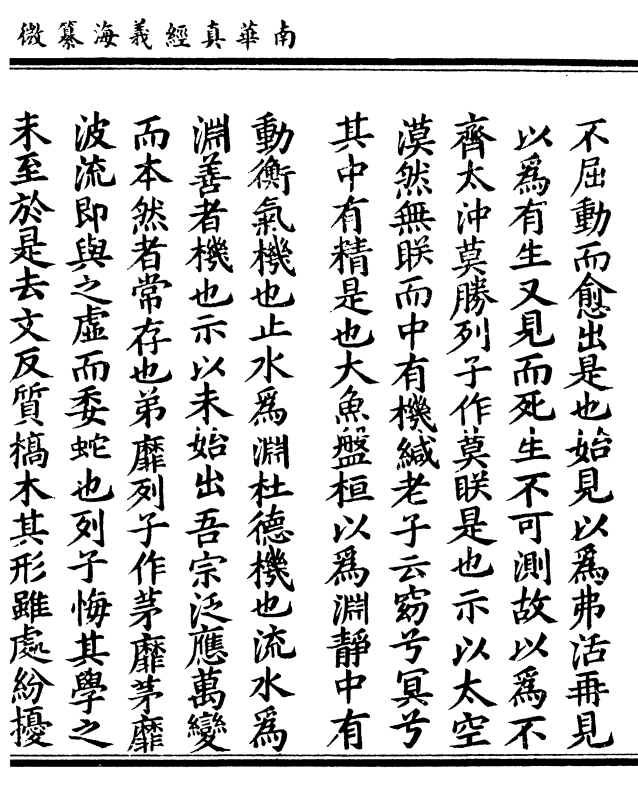 南華真經義海纂微
不屈動而愈出是也始見以爲弗活再見
以爲有生又見而死生不可測故以爲不
齊太沖莫勝列子作莫眹是也示以太空
漠然無眹而中有機緘老子云窈兮冥兮
其中有精是也大魚盤桓以爲淵靜中有
動衡氣機也止水爲淵杜德機也流水爲
淵善者機也示以未始出吾宗泛應萬變
而本然者常存也弟靡列子作茅靡茅靡
波流即與之虛而委蛇也列子悔其學之
未至於是去文反質槁木其形雖處紛擾